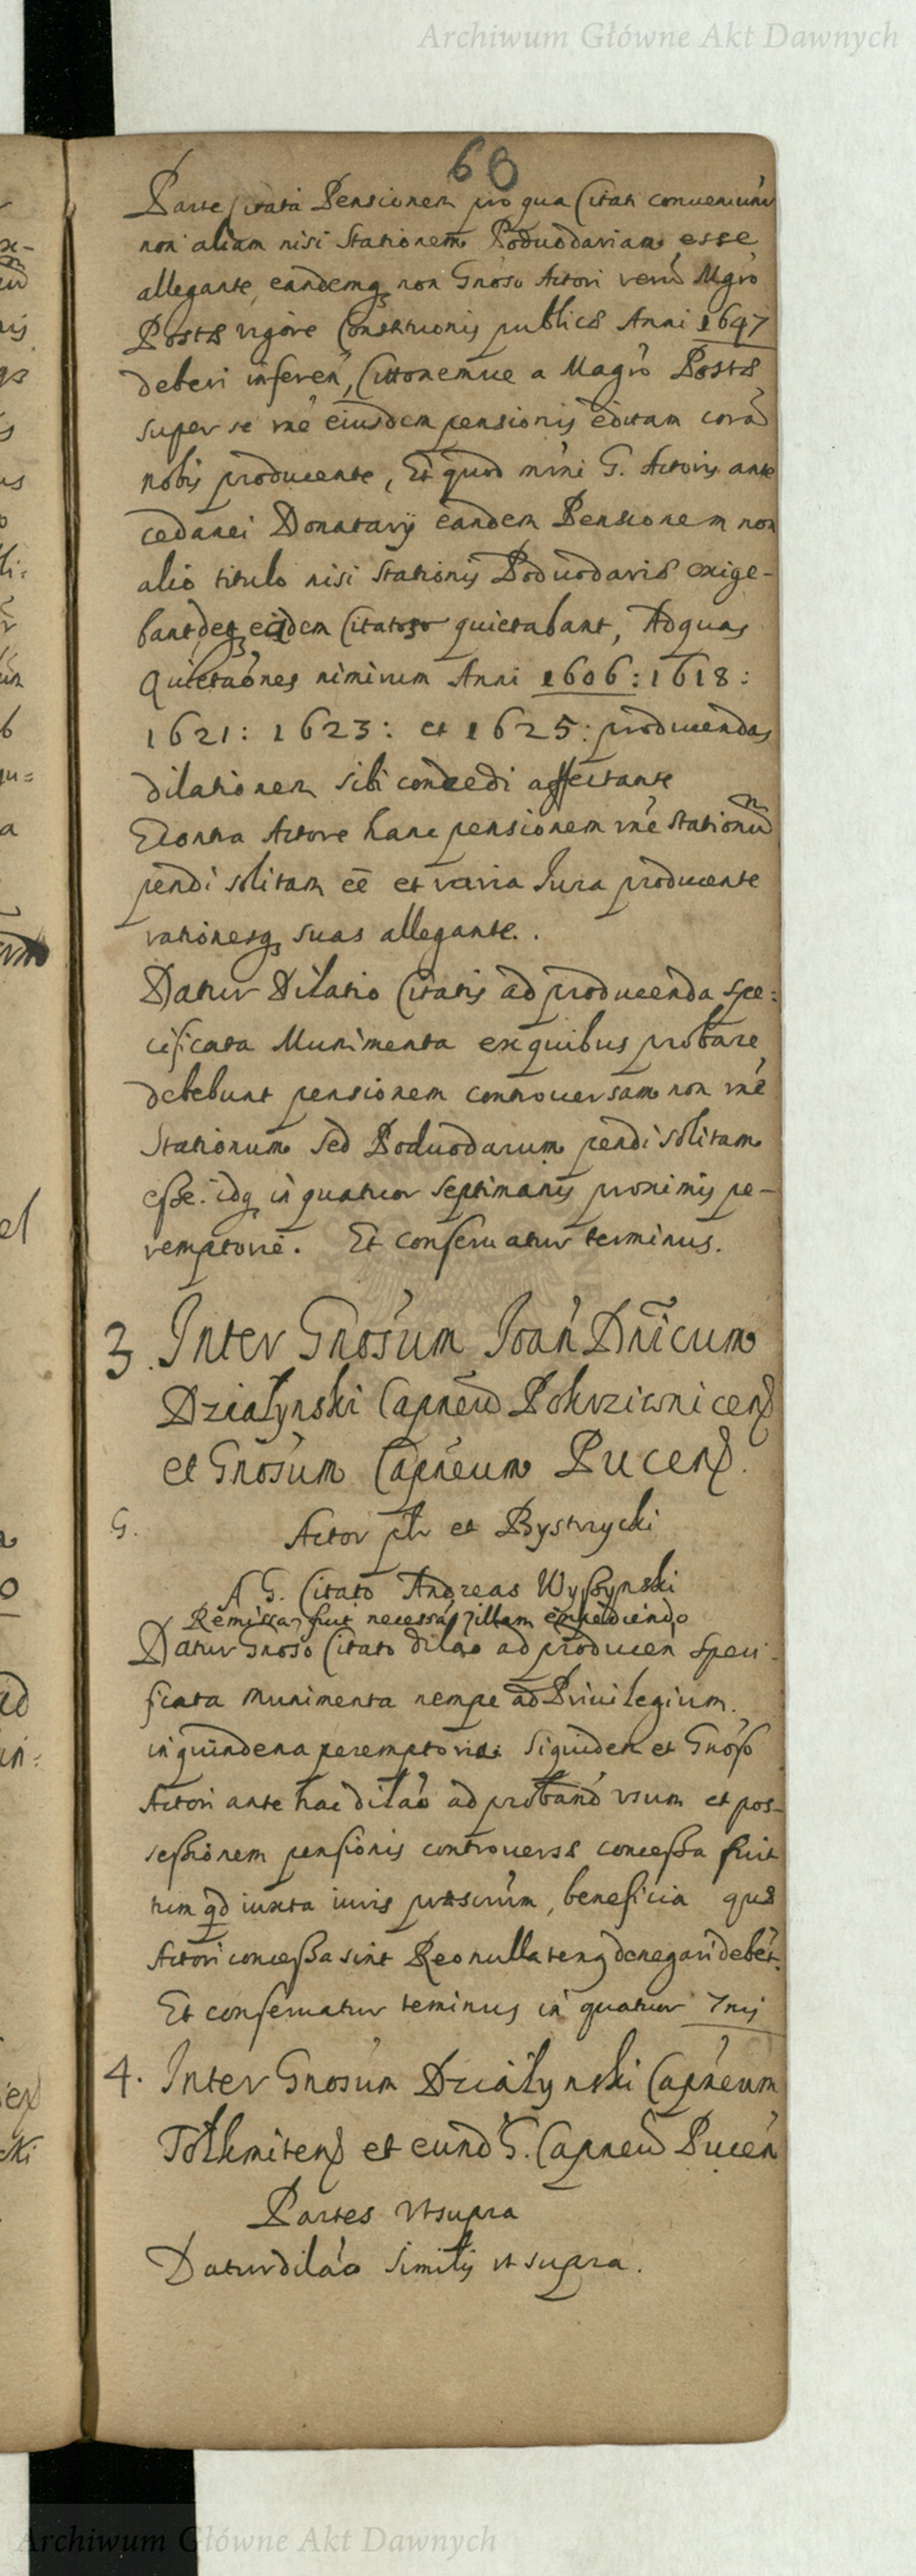 Archiwum Główne Akt Dawnych
60
Parte Citata Pensionem pro qua Citati conueniunr
non aliam nisi Stationem Poduodariam esse
allegante, eandemq non Gnoso Actori verū Mgro
Postæ vigore Constitutionis publicæ Anni 1647
deberi inferen, Cittonemue a Magro Postæ
super se rne eiusdem pensionis editam corā
nobis producente, Et quod mrni G. Actoris ante
cedanei Donatarij eandem Pensionem non
alio titulo nisi Stationis Poduodariæ exige-
bant, deq eadem Citatos quietabant, Ad quas
Quietaones nimirum Anni 1606: 1618:
1621: 1623: et 1625: producendas
dilationem sibi concedi affectante
Econtra Actore hanc pensionem rne stationū
pendi solitam eē et varia Jura producente
rationesq suas allegante.
Datur Dilatio Citatis ad producenda spe:
cificata Munimenta ex quibus probare
debebunt pensionem controuersam non rne
Stationum sed Poduodarum pendi solitam
esse. idq in quatuor septimanis proximis pe-
remptorie. Et conseruatur terminus.
3. Inter Gnosum Joan Dnicum
Działynski Capneū Pokrziwnicens
et Gnosum Capneum Pucens.
G. Actor ph et Bystrzycki
A G. Citato Andreas Wyszynski
Remissa fuit necessa illam
Datur Gnoso Citato dilao ad producen speci-
ficata munimenta nempe ad Priuilegium.
in quindena peremptoria: Siquidem et Gnoso
Actori ante hac dilao ad proband vsum et pos-
sessionem pensionis controuersæ concessa fuit
tum qd iuxta iuris præscrūm, beneficia quæ
Actori concessa sint Reo nullatenq denegari debet.
Et conseruatur teminus in quatuor 7nis
4. Inter Gnosum Działynski Capneum
Tolkmitens et eund G. Capneū Pucen
Partes vt supra
Datur dilao similis vt supra.
Archiwum Główne Akt Dawnych